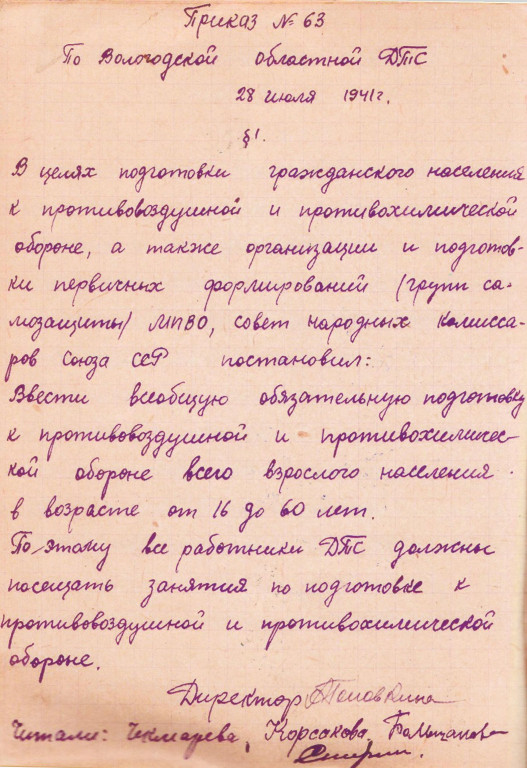 Приказ № 63
По Вологодской областной ДТС
28 июля 1941 г.
§ 1.
В целях подготовки гражданского населения
к противовоздушной и противохимической
обороне, а также организации и подготов-
ки первичных формирований (групп са-
мозащиты) МПВО, совет народных комисса-
ров Союза ССР постановил:
Ввести всеобщую обязательную подготовку
к противовоздушной и противохимичес-
кой обороне всего взрослого населения
в возрасте от 16 до 60 лет.
Поэтому все работники ДТС должны
посещать занятия по подготовке к
противовоздушной и противохимической
обороне.
Директор
Читали: Чекмарева, Корсакова,